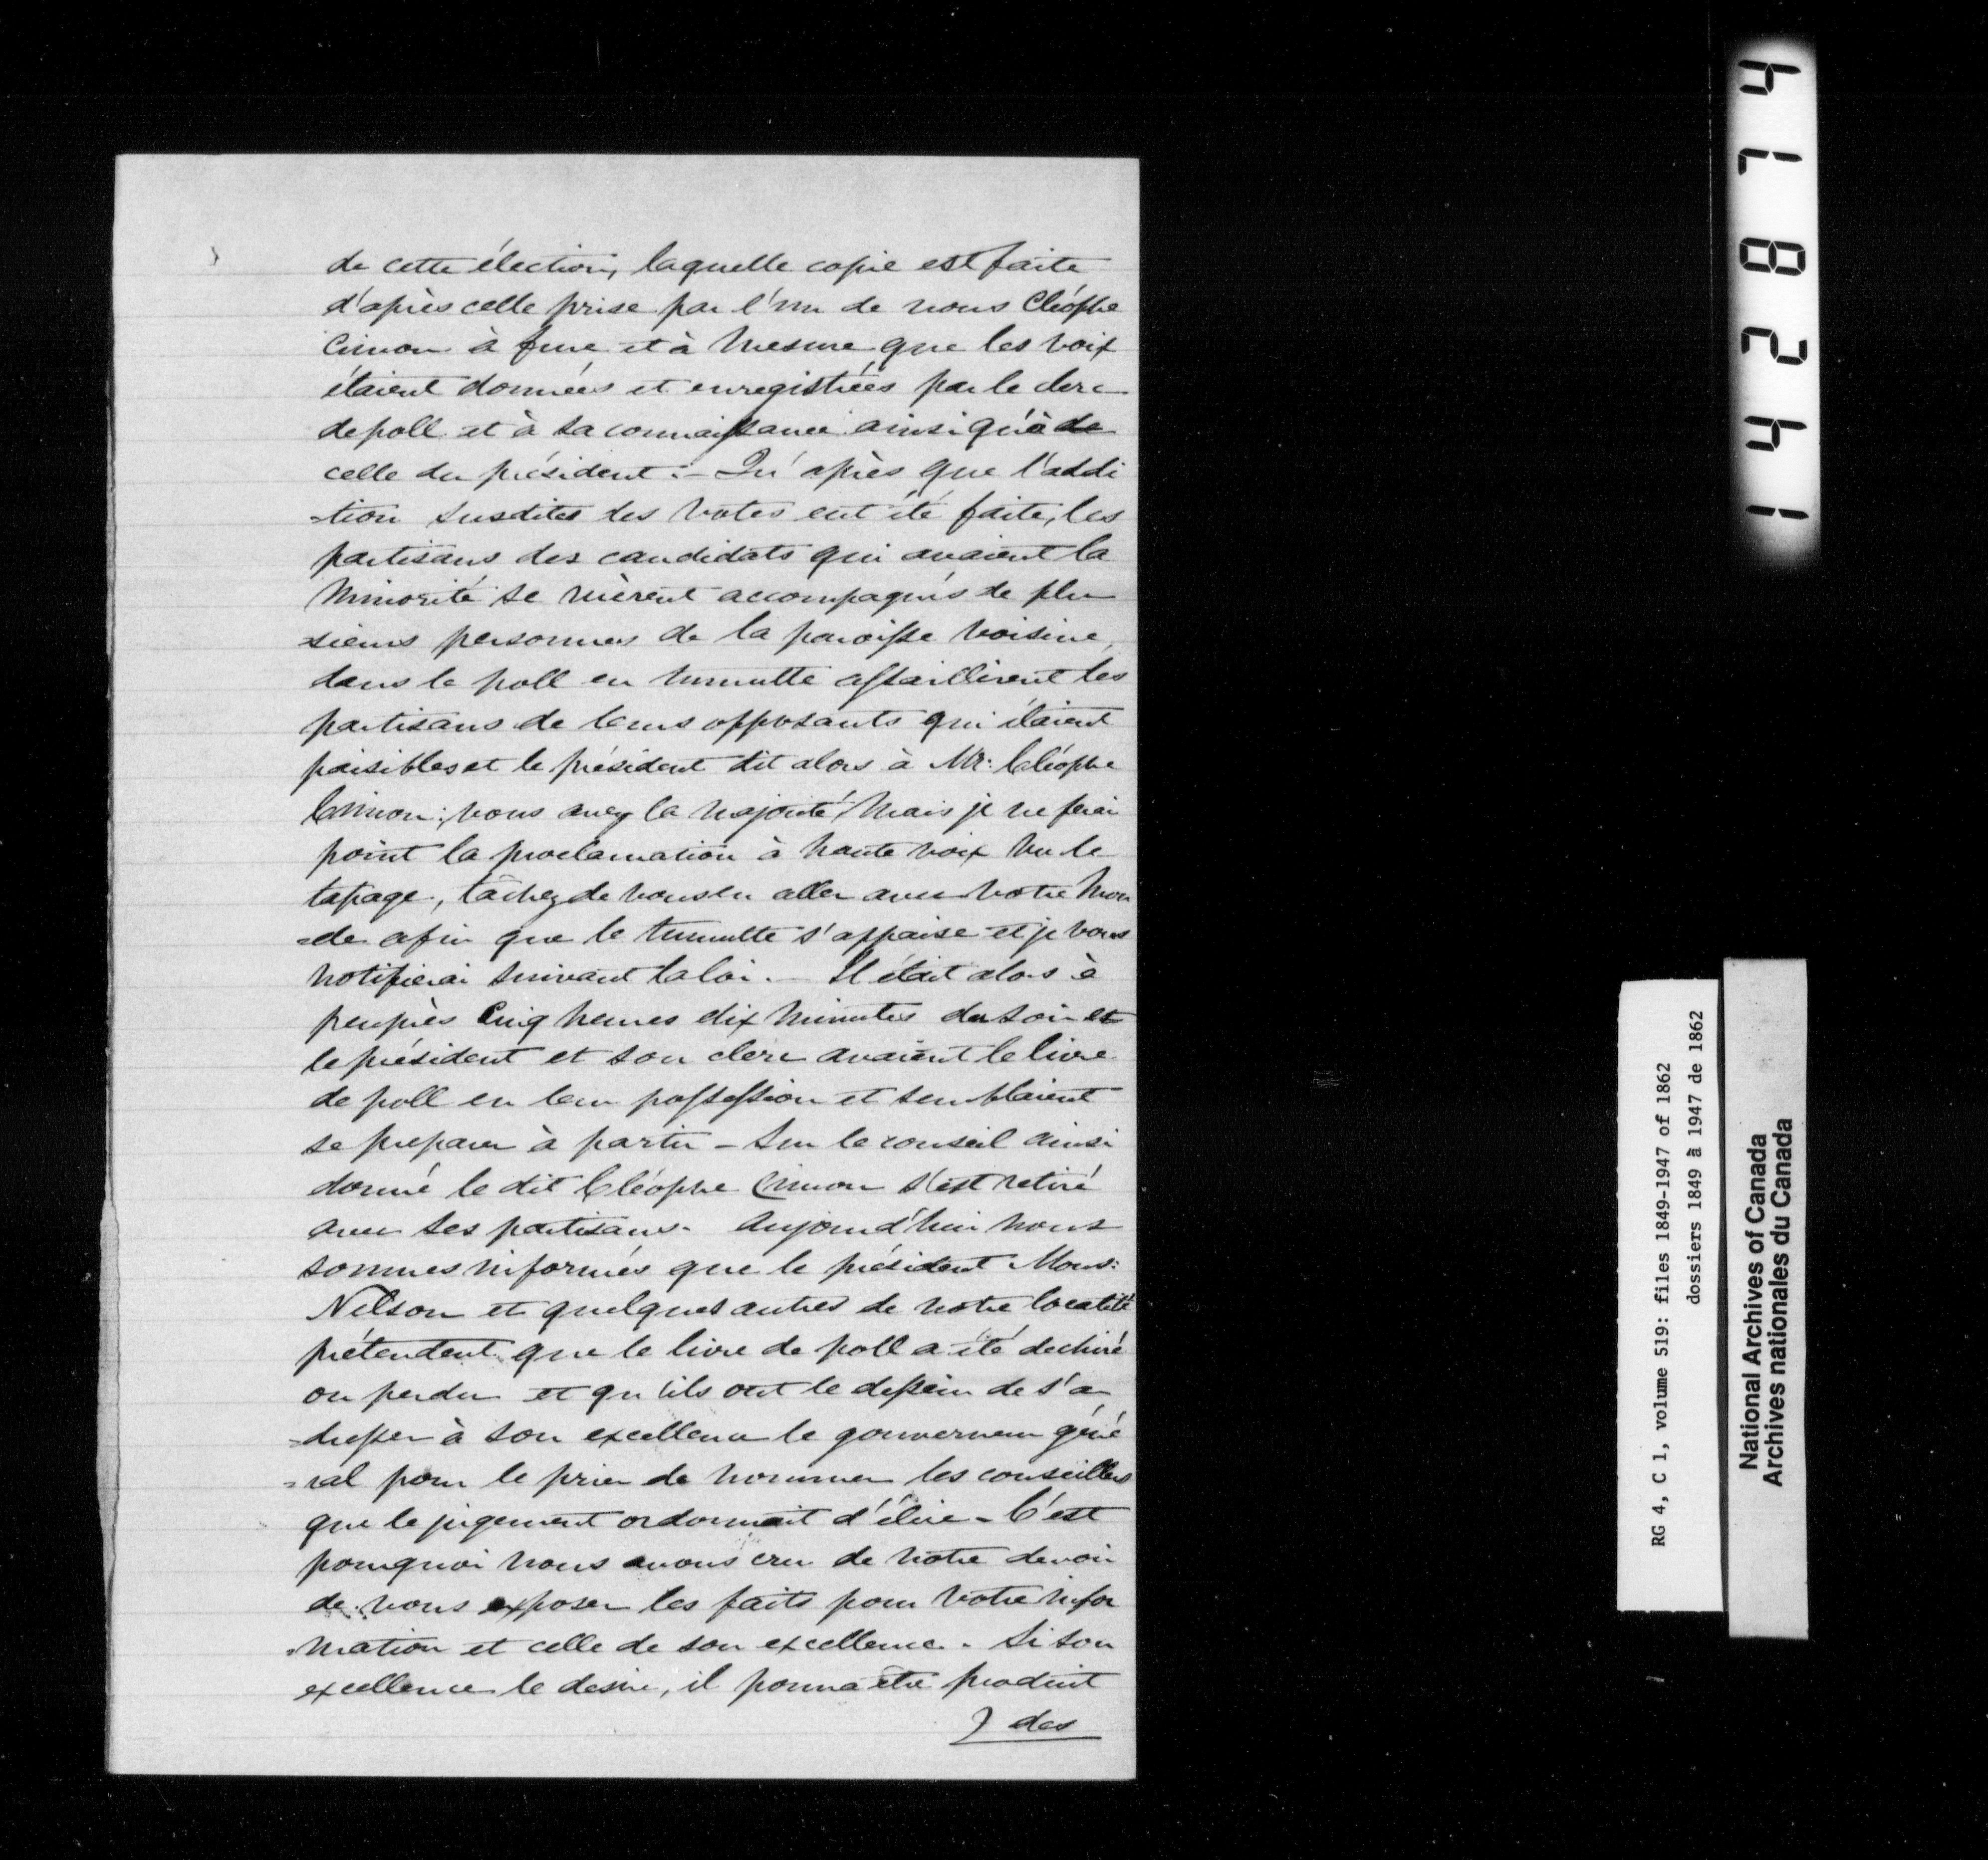 de cette élection, laquelle copie est faite
d'après celle prise par l'un de nous Cléophe
Cimon à fure et à mesure que les voix
étaient données et enregistrées par le clerc
de poll et à sa connaissance ainsi qu'à de
celle du président :- Qu'après que l'addi
=tion susdites des votes eut été faite, les
partisans des candidats qui avaient la
minorité se ruèrent accompagnés de plu
=sieurs personnes de la paroisse voisine,
dans le poll en tumulte assaillirent les
partisans de leurs opposants qui étaient
paisibles et le président dit alors à Mr: Cléophe
Cimon : vous avez la majorité mais je ne ferai
point la proclamation à haute voix vu le
tapage, tâchez de vous en aller avec votre mon
=de afin que le tumulte s'appaise et je vous
notifierai suivant la loi. — Il était alors à
peuprès cinq heures dix minutes du soir et
le président et son clerc avaient le livre
de poll en leur possession et semblaient
se preparer à partir – Sur le conseil ainsi
donné le dit Cléophe Cimon s'est retiré
avec ses partisans. Aujourd'hui nous
sommes informés que le président Mons:
Nelson et quelques autres de notre localité
prétendent que le livre de poll a été dechiré
ou perdu et qu'ils ont le dessein de s'a
=dresser à son excellence le gouverneur géné
=ral pour le prier de nommer les conseillers
que le jugement ordonnait d'élire – C'est
pourquoi nous avons cru de notre devoir
de vous exposer les faits pour votre infor
=mation et celle de son excellence. Si son
excellence le desire, il pourra être produit
des
1 4 2 8 7 4
RG 4, C 1, volume 519: files 1849-1947 of 1862
dossiers 1849 à 1947 de 1862
National Archives of Canada
Archives nationales du Canada